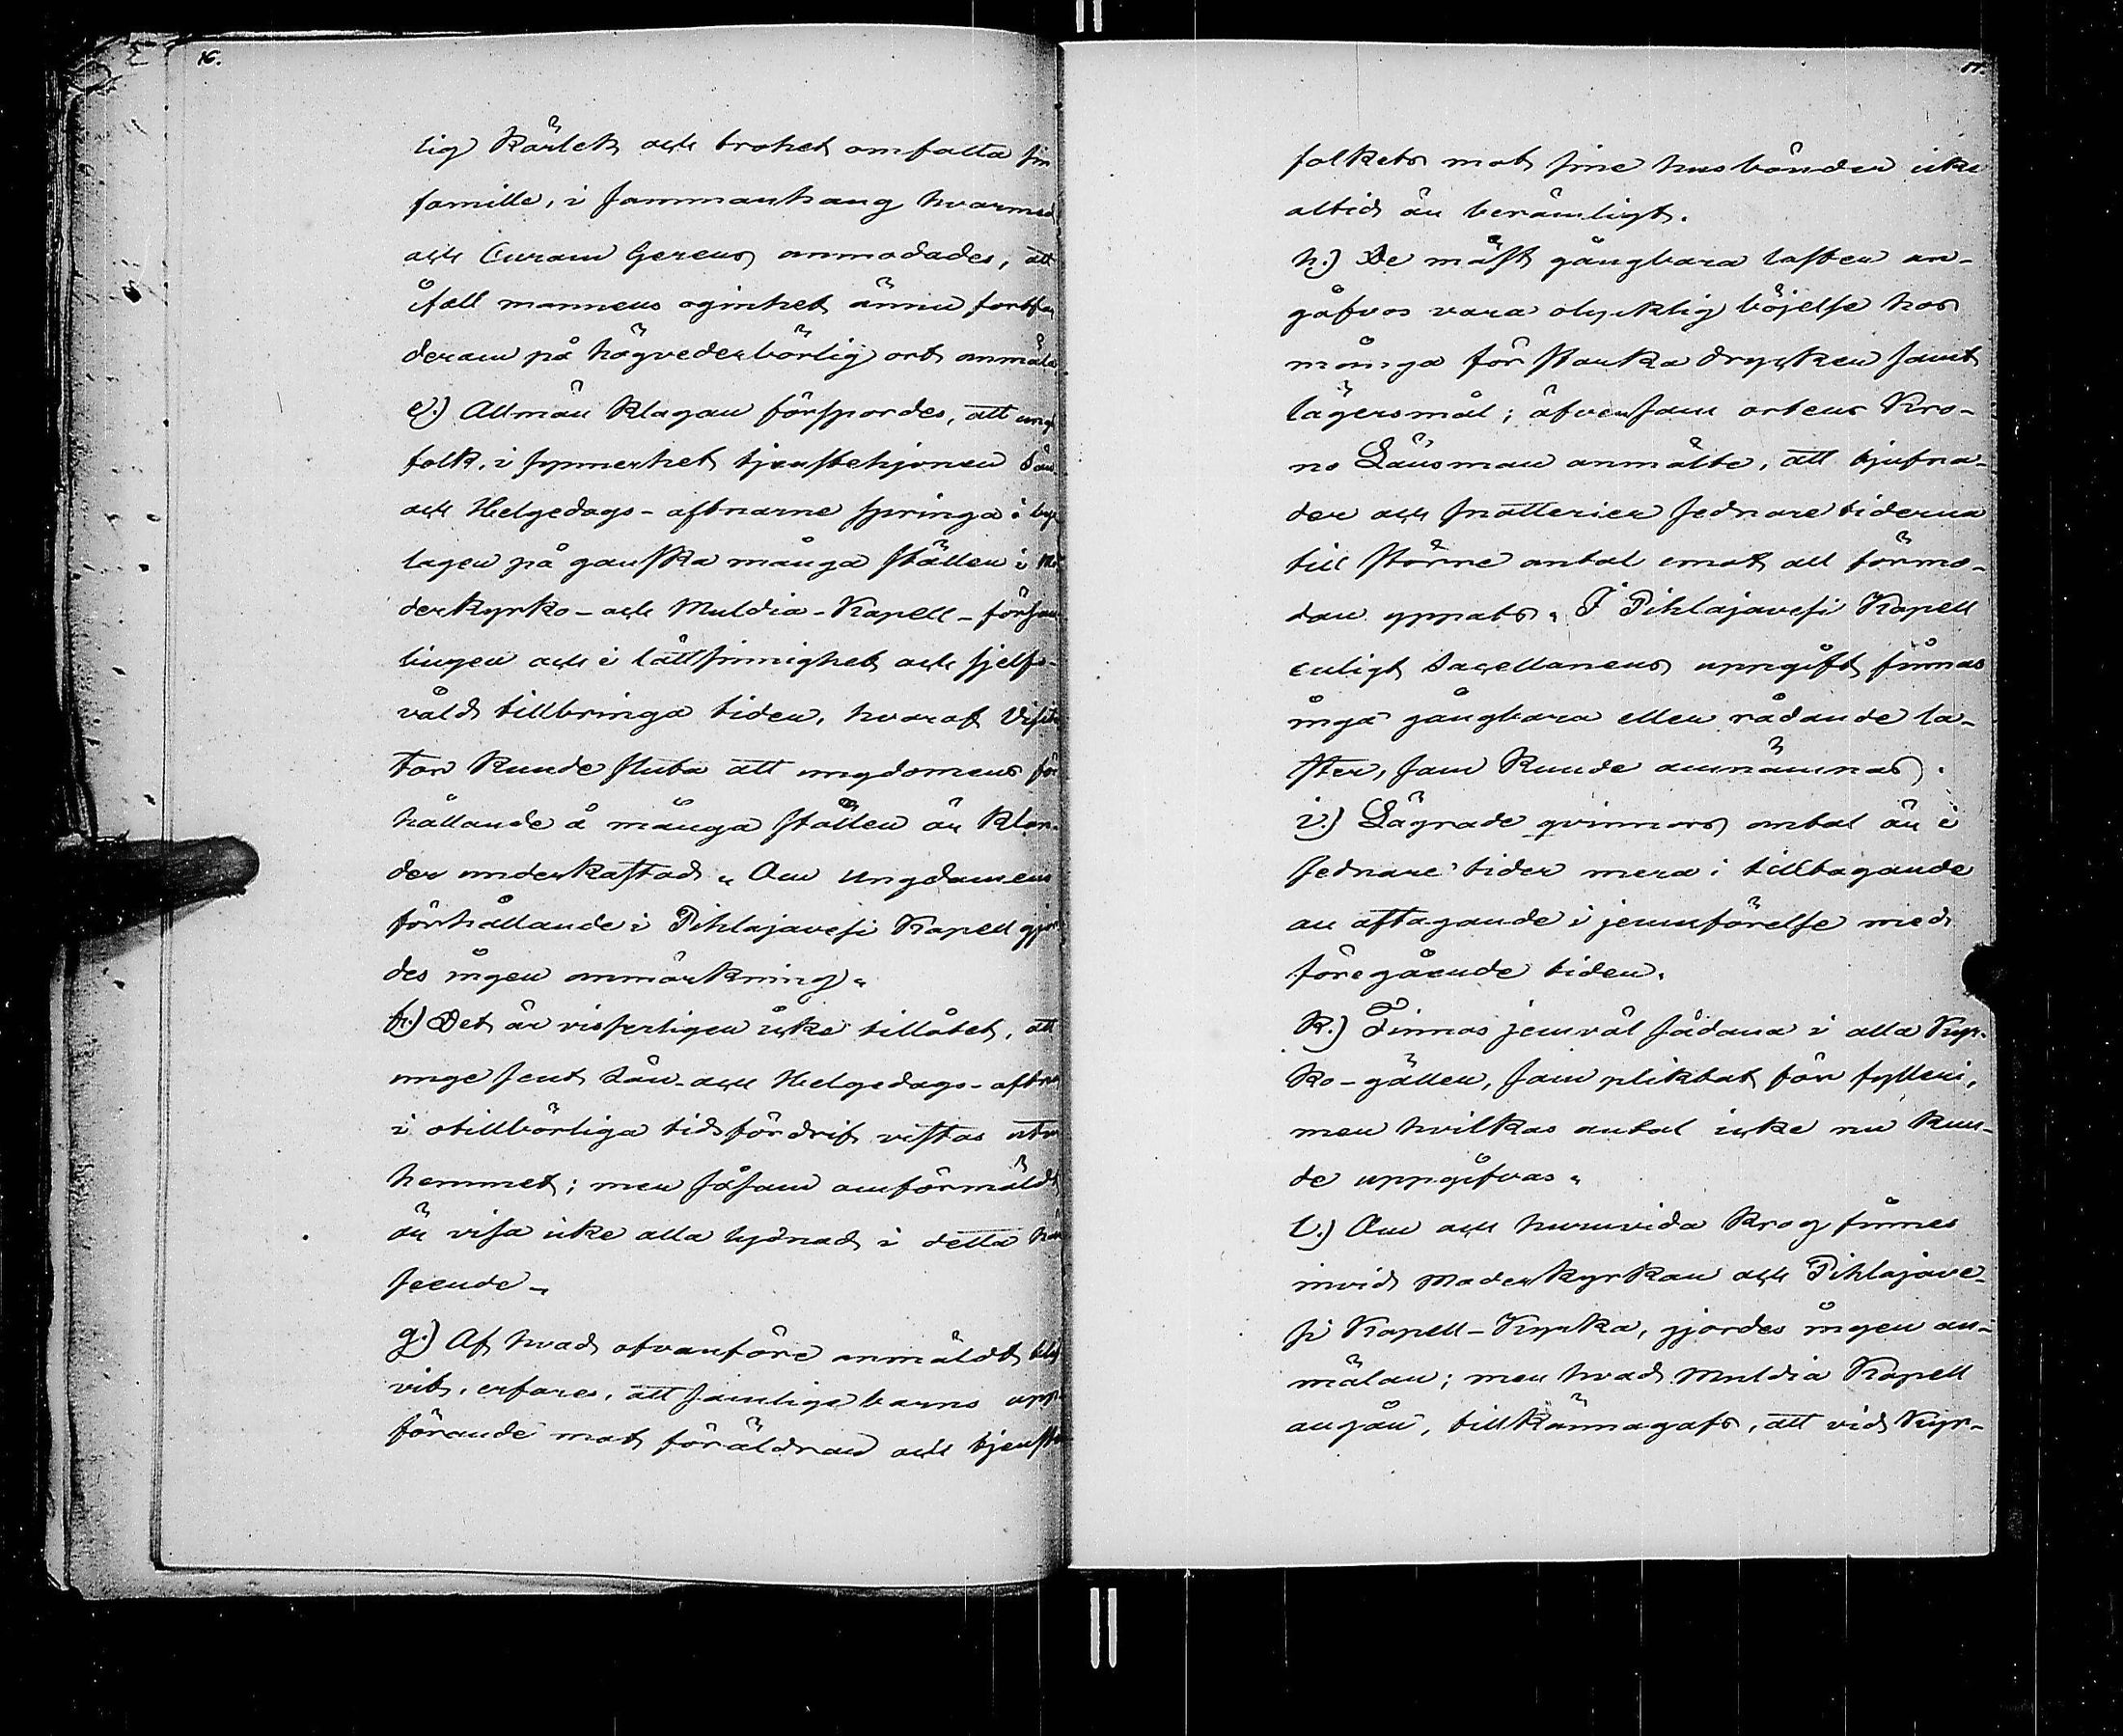 16.
lig kärlek och trohet omfatta sin
famille, i sammanhang hvarmed
och Curam Gerens anmodades, att
ifall mannens oginhet ännu fortfar
derom på högvederbörlig ort anmäla
e.) Allmän klagan förspordes, att ungt
folk, i synnerhet tjenstehjonen Sön-
och Helgedags-aftnarne springa i bya
lagen på ganska många ställen i Mo
derkyrko- och Muldia-Kapell-försam
lingen och i lättsinnighet och sjelfs-
våld tillbringa tiden, hvaraf Visita
tor kunde sluta att ungdomens för
hållande å många ställen är klan-
der underkastad. Om Ungdomens
förhållande i Pihlajavesi Kapell gjor
des ingen anmärkning.
f.) Det är visserligen icke tillåtet, att
unge sent Sön- och Helgedags-aftnar
i otillbörliga tidsfördrif vistas utom
hemmet; men såsom omförmäldt
är visa icke alla lydnad i detta hän
seende.
g.) Af hvad ofvanföre anmäldt bli
vit, erfares, att samtliga barns upp-
förande mot föräldrar och tjenste
17.
folkets mot sine husbönder icke
altid är berömligt.
h.) De mäst gångbara laster an-
gåfvos vara olycklig böjelse hos
många för starka drycker samt
lägersmål; äfvensom ortens Kro-
no Länsman anmälte, att tjufna-
der och snatterier sednare tiderna
till större antal emot all förmo-
dan yppats. I Pihlajavesi Kapell
enligt Sacellanens uppgift finnas
inga gångbara eller rådande la-
ster, som kunde omnämnas.
i.) Lägrade qvinnors antal är i
sednare tider mera i tilltagande
än aftagande i jemnförelse med
föregående tider.
k.) Finnas jemväl sådana i alla Kyr-
ko-gällen, som pliktat för fylleri,
men hvilkas antal icke nu kun-
de uppgifvas.
l.) Om och huruvida krog finnes
invid Moderkyrkan och Pihlajave-
si Kapell-Kyrka, gjordes ingen an-
mälan; men hvad Muldia Kapell
angår, tillkännagafs, att vid Kyr-